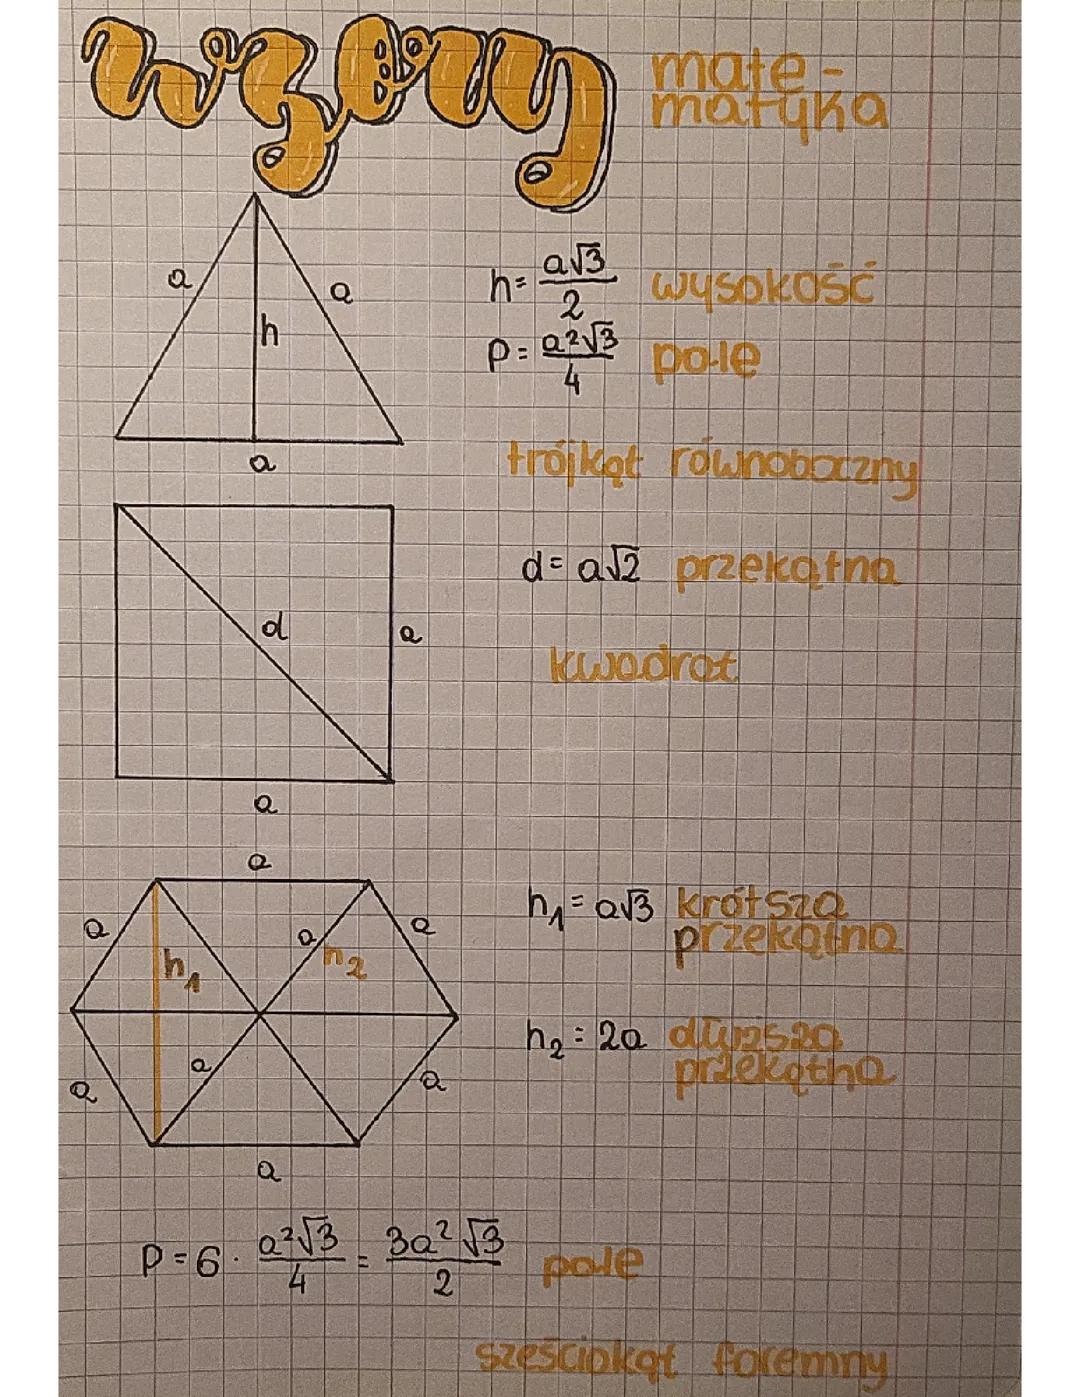 wzory
mate-
matyka
a
a
h
a
h = a√3/2 wysokość
P = a²√3/4 pole
trójkąt równoboczny
d = a√2 przekątna
d
a
kwadrat
a
a
a
a
a
h₁
h₂
h₁ = a√3 krótsza
przekątna
h₂ = 2a dłuższa
przekątna
a
a
a
a
P = 6 · a²√3/4 = 3a²√3/2 pole
sześciokąt foremny